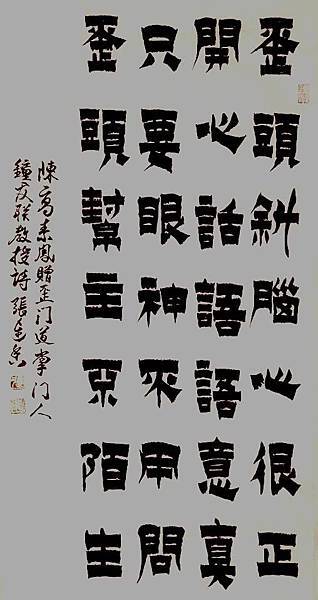 歪頭斜腦心很正
開心話語語意真
只要眼神不用問
歪頭幫主不陌生
陳高素鳳贈歪门道掌门人
鐘友聯教授詩 張